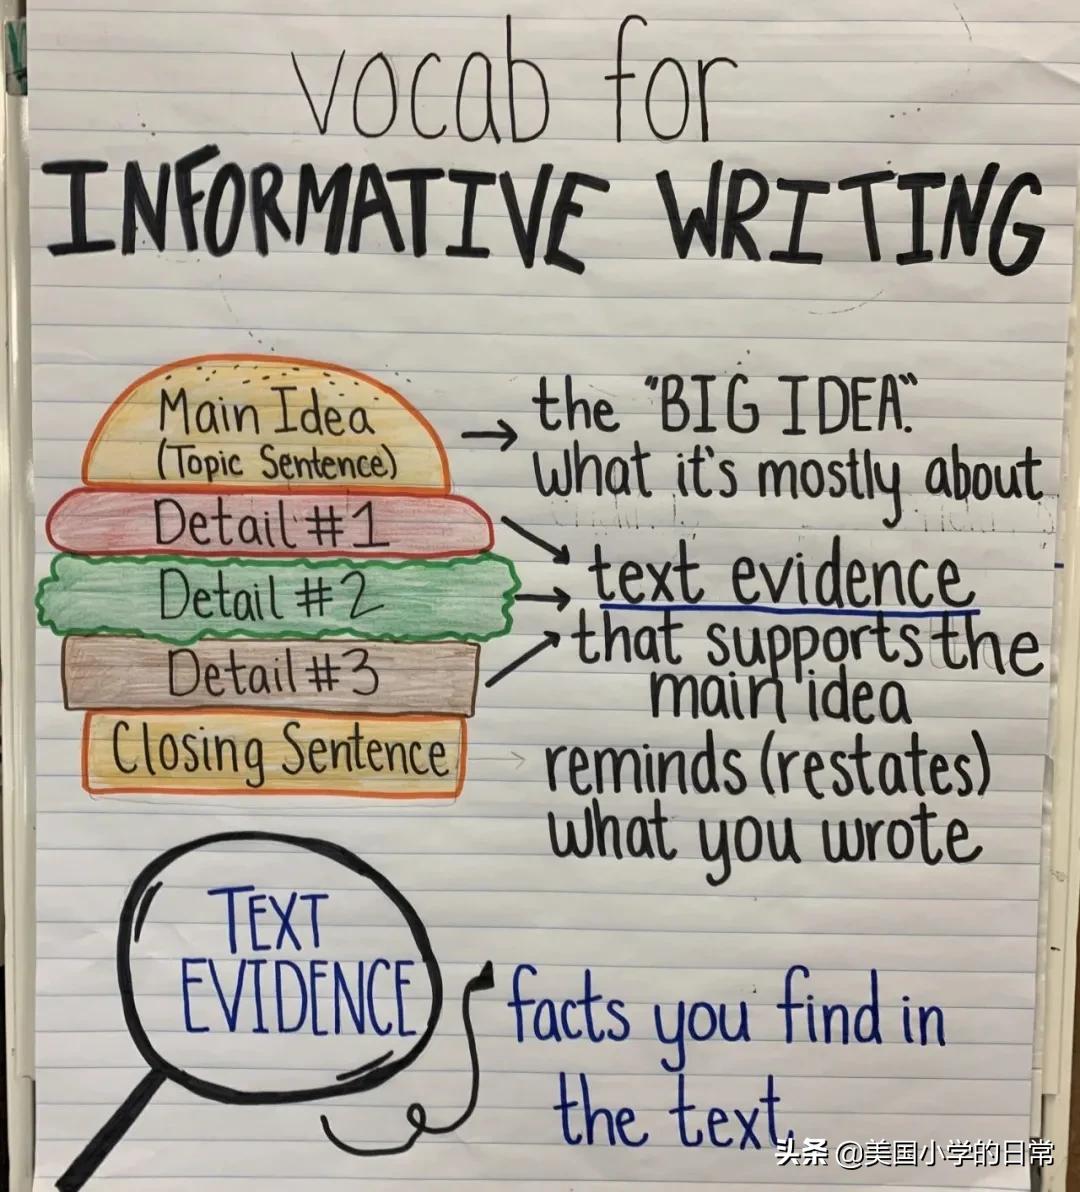 vocab for
INFORMATIVE WRITING
Main Idea
(Topic Sentence)
the "BIG IDEA".
what it's mostly about
Detail #1
Detail #2
Detail #3
text evidence
that supports the
main idea
Closing Sentence
reminds (restates)
what you wrote
TEXT
EVIDENCE
facts you find in
the text.
头条 @美国小学的日常